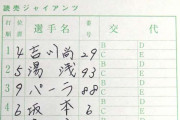 読売ジャイアンツ
打順 選手名 番号 交代
1 4 吉川尚 29 B C D E
2 5 湯浅 93 B C D E
3 9 パーラ 88 B C D E
4 6 坂本 6 B D